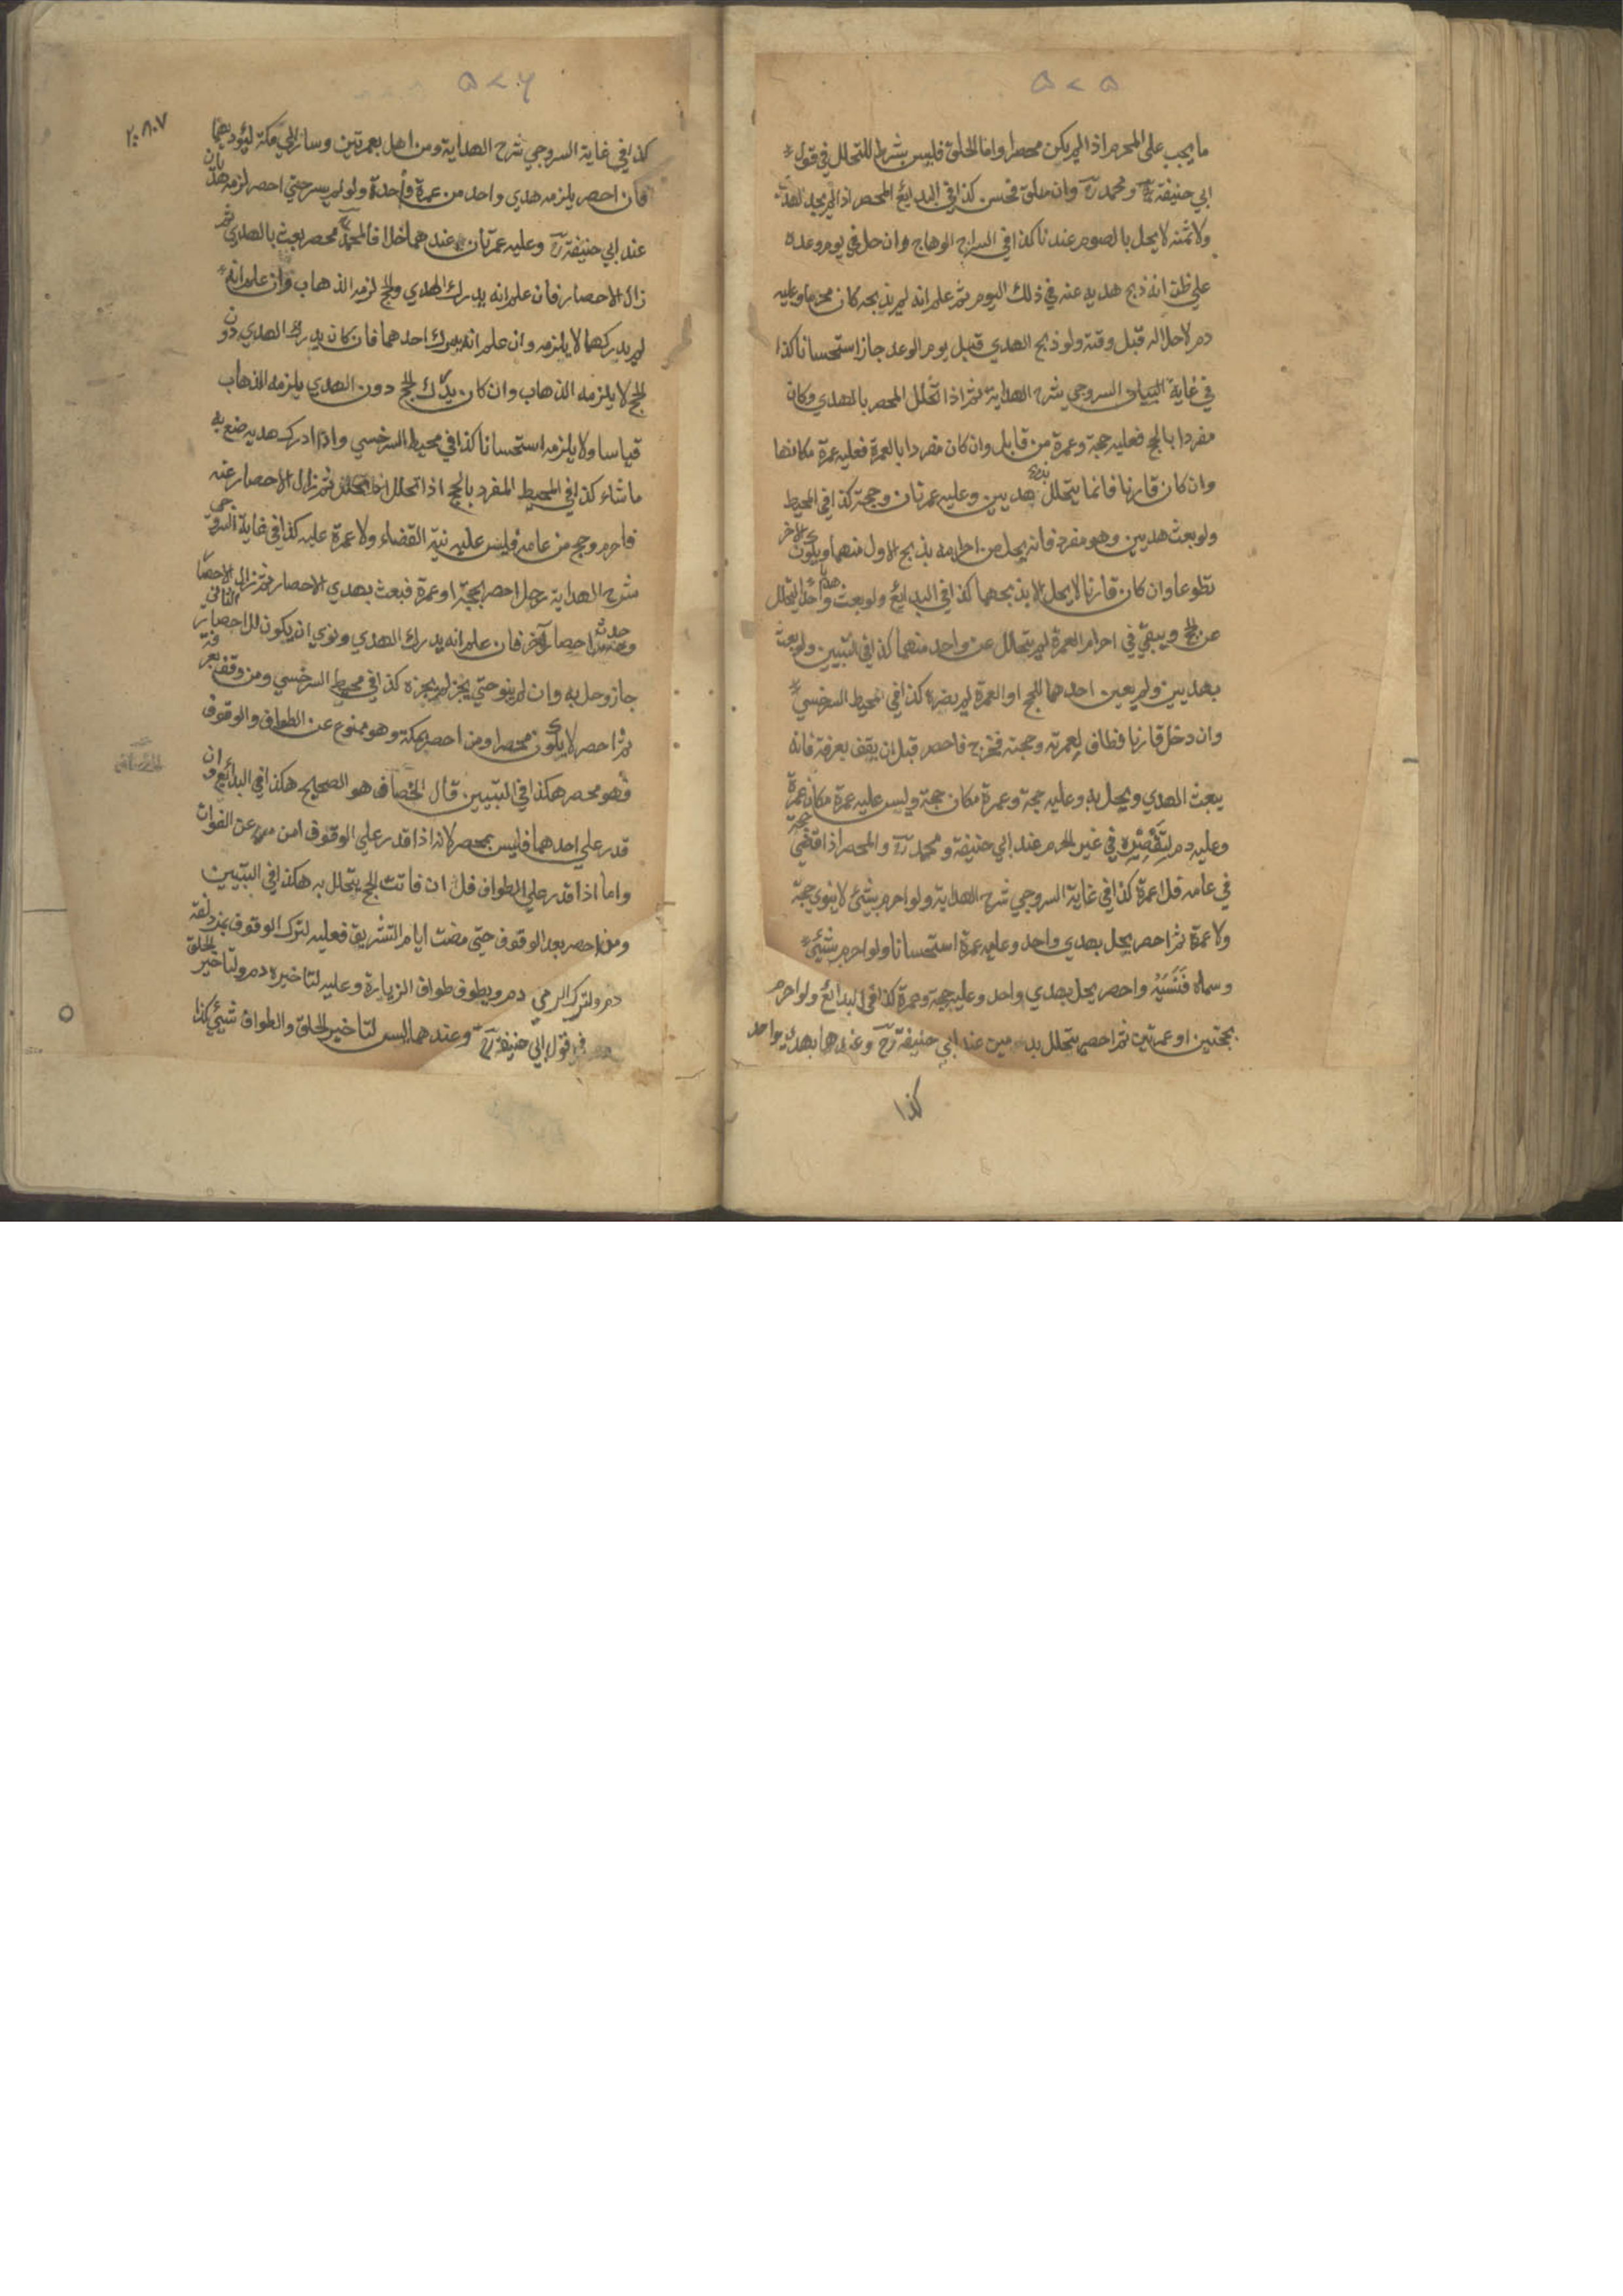 ۵۷۵
ما يجب على المحرم اذا لم يكن محصرا واما الحلق فليس بشرط للتحلل في قول
ابي حنيفة رح ومحمد رح وان حلق فحسن كذا في البدايع المحصر اذا لم يجد الهدي
ولا ثمنه لا يحل بالصوم عندنا كذا في السراج الوهاج وان حل في يوم وعده
على ظن انه ذبح هديه عنه في ذلك اليوم ثم علم انه لم يذبحه كان محرما وعليه
دم لاحلاله قبل وقته ولو ذبح الهدي قبل يوم الوعد جاز استحسانا كذا
في غاية السروجي شرح الهداية ثم اذا تحلل المحصر بالهدي وكان
مفردا بالحج فعليه حجة وعمرة من قابل وان كان مفردا بالعمرة فعليه عمرة مكانها
وان كان قارنا فانما يتحلل بذبح هديين وعليه عمرتان وحجة كذا في المحيط
ولو بعث هديين وهو مفرد فانه يحل من احرامه بذبح الاول منهما ويكون الاخر
تطوعا وان كان قارنا لا يحل الا بذبحهما كذا في البدائع ولو بعث هديا واحدا ليتحلل
عن الحج ويبقى في احرام العمرة لم يتحلل عن واحد منهما كذا في التبيين ولو بعث
بهديين ولم يعين احدهما للحج او العمرة لم يضره كذا في محيط السرخسي
وان دخل قارنا فطاف لعمرته وحجته فخرج فاحصر قبل ان يقف بعرفة فانه
يبعث الهدي ويحل به وعليه حجة وعمرة مكان حجة وليس عليه عمرة مكان عمرة
وعليه دم لتقصيره في غير الحرم عند ابي حنيفة ومحمد رح والمحصر اذا قضى حجة
في عامه فلا عمرة كذا في غاية السروجي شرح الهداية ولو احرم بشئ لا ينوي حجة
ولا عمرة ثم احصر يحل بهدي واحد وعليه عمرة استحسانا ولو احرم بشيئ
وسماه فَنَسِيَهُ واحصر يحل بهدي واحد وعليه حجة وعمرة كذا في البدائع ولو احرم
بحجتين او عمرتين ثم احصر يتحلل بدمين عند ابي حنيفة رح وعندهما بهدي واحد
كذا
۵۷۶
٢٠٨٠٧
كذا في غاية السروجي شرح الهداية ومن اهل بعمرتين وسار الى مكة ليؤديهما
فان احصر يلزمه هدي واحد من عمرة واحدة ولو لم يسر حتي احصر لزمه هديان
عند ابي حنيفة رح وعليه عمرتان عندهما خلافا لمحمد رح محصر بعث بالهدي ثم
زال الاحصار فان علم انه يدرك الهدي والحج لزمه الذهاب وان علم انه
لم يدركهما لا يلزمه وان علم انه يدرك احدهما فان كان يدرك الهدي دون
الحج لا يلزمه الذهاب وان كان يدرك الحج دون الهدي يلزمه الذهاب
قياسا ولا يلزمه استحسانا كذا في محيط السرخسي واذا ادرك هديه صنع به
ما شاء كذا في المحيط المفرد بالحج اذا تحلل ثم زال الاحصار عنه
فاحرم وحج من عامه فليس عليه نية القضاء ولا عمرة عليه كذا في غاية السروجي
شرح الهداية رجل احصر بحجة او عمرة فبعث بهدي الاحصار ثم زال الاحصار
وحدث احصار آخر فان علم انه يدرك الهدي ونوي ان يكون للاحصار الثاني
جاز وحل به وان لم ينو حتي يجز لم يجزه كذا في محيط السرخسي ومن وقف بعرفة
ثم احصر لا يكون محصرا ومن احصر بمكة وهو ممنوع عن الطواف والوقوف
فهو محصر هكذا في التبيين قال الخصاف هو الصحيح هكذا في البدائع وان
قدر علي احدهما فليس بمحصر لانه اذا قدر علي الوقوف امن عن الفوات
واما اذا قدر علي الطواف فلان فائت الحج يتحلل به هكذا في التبيين
ومن احصر بعد الوقوف حتي مضت ايام التشريق فعليه لترك الوقوف بمزدلفة
دم ولترك الرمي دم ويطوف طواف الزيارة وعليه لتاخيره دم ولتاخير الحلق
في قول ابي حنيفة رح وعندهما ليس لتاخير الحلق والطواف شيئ كذا